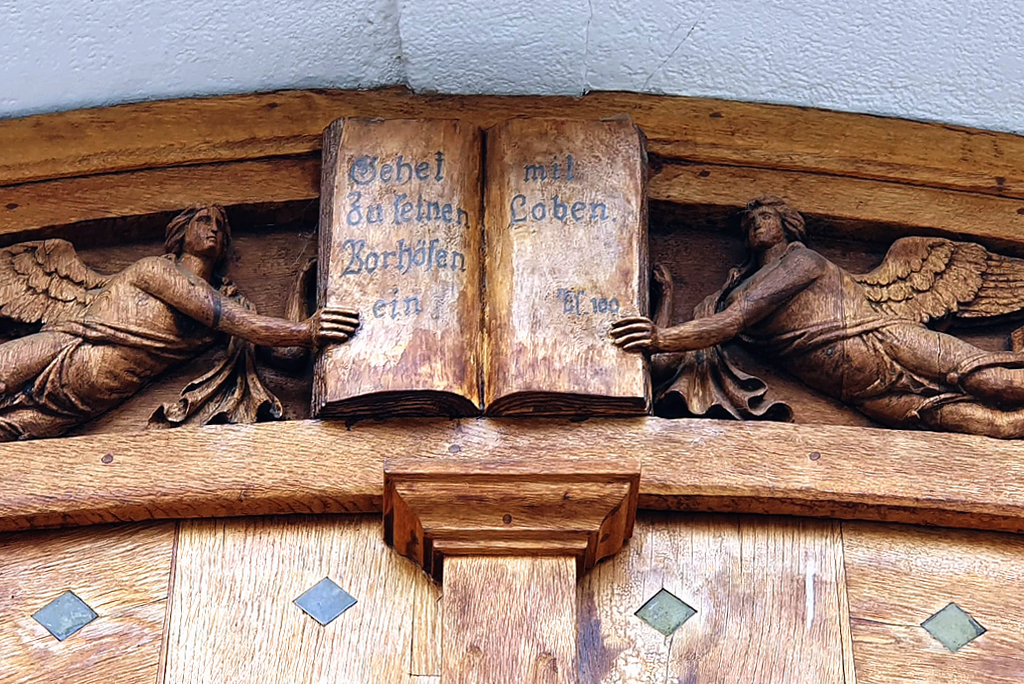 Gehet
Zu seinen
Vorhöfen
ein!
mit
Loben
Ψ 100